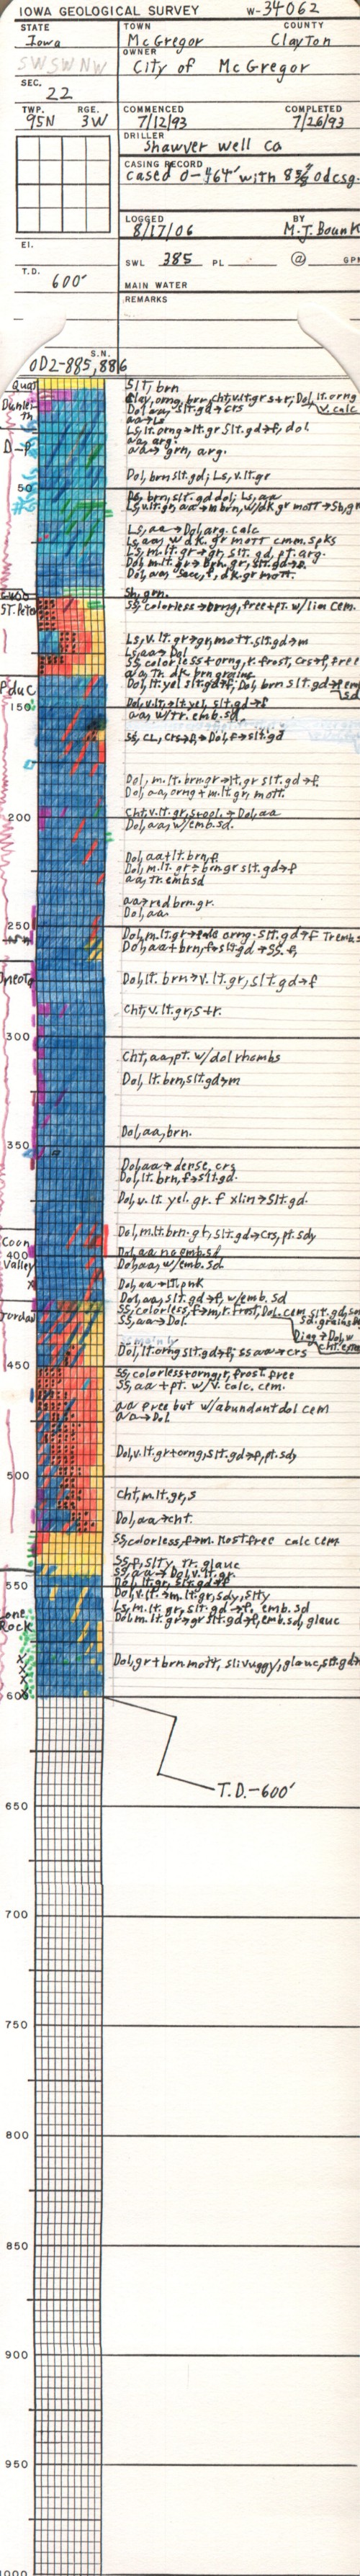 IOWA GEOLOGICAL SURVEY W-34062
STATE TOWN COUNTY
Iowa McGregor Clayton
OWNER
SWSWNW City of McGregor
SEC.
22
TWP. RGE. COMMENCED COMPLETED
95N 3W 7/12/93 7/26/93
DRILLER
Shawver well co
CASING RECORD
cased 0-464' with 8⅝ od csg.
LOGGED BY
8/17/06 M.J. Bounk
El. SWL 385 PL @ GPM
T.D. 600'
MAIN WATER
REMARKS
S.N.
OD2-885,886
Quat Slt, brn
Clay, orng, brn, cht, v.lt.gr s+r; Dol, lt. orng
Dunleith Dol, aa, slt.gd→crs v. calc
aa→Ls
Ls, lt. orng→lt.gr slt.gd→f, dol.
D-P aa, arg.
aa→grn, arg.
Dol, brn slt.gd; Ls, v.lt.gr
50
Ls, v.lt.gr, aa→m.brn, w/dk.gr mott→Sh, gr
Ls, aa→Dol, arg. calc
Ls, aa, w dk. gr mott cmm. spks
Ls, m.lt.gr→gr, slt. gd, pt. arg.
Dol, aa, f, dk.gr mott.
Sh, grn.
100
St. Pete SS, colorless→orng, free+pt. w/lim cem.
Ls, v. lt. gr→gr, mott. slt.gd→m
Ls, aa→Dol
SS, colorless+orng, r. frost, crs→f, free
aa, Tr. dk brn grains
PduC Dol, lt. yel slt.gd→f, Dol, brn slt.gd→f emb sd
150 Dol, v.lt→lt. yel, slt.gd→f
aa, w/tr. emb. sd.
SS, CL, crs→f; Dol, f→slt.gd
Dol, m.lt. brn gr→lt. gr slt.gd→f.
Dol, aa, orng + m.lt. gr, mott.
200 Cht, v.lt. gr, s+ool.→Dol, aa
Dol, aa, w/emb. sd.
Dol, aa+lt. brn, f.
Dol, m.lt. gr→brn gr slt.gd→f
aa, tr. emb sd
aa→red brn. gr.
Dol, aa.
250 Dol, m.lt. gr→pale orng. slt.gd→f Tr emb s
Dol, aa+brn, f→slt.gd→SS. f,
Oneota Dol, lt. brn→v. lt. gr, slt.gd→f
Cht, v. lt. gr, s+r.
300
Cht, aa, pt. w/dol rhombs
Dol, lt. brn, slt.gd→m
Dol, aa, brn.
350
Dol, aa→dense, crs
Dol, lt. brn, f→slt.gd.
Dol, v.lt. yel. gr. f xlin→slt.gd.
Coon Dol, m.lt. brn-gr, slt.gd→crs, pt. sdy
400 Dol, aa no emb. sd
Valley Dol, aa, w/emb. sd.
Dol, aa→lt. pnk
Dol, aa, slt.gd→f, w/emb. sd
Jordan SS, colorless, f→m, r. frost, Dol. cem
SS, aa→Dol.
mainly
Dol, lt. orng slt.gd→f; SS aa→crs
450
SS, colorless+orng, r, frost, free
SS, aa + pt. w/v. calc. cem.
aa free but w/abundant dol cem
aa→Dol
Dol, v.lt.gr+orng, slt.gd→f, pt. sdy
500
Cht, m.lt.gr, s
Dol, aa→cht.
SS, colorless, f→m. Most free calc cem
SS, f, slty, tr. glauc
SS, aa→Dol, v.lt. gr.
Dol, lt. gr, slt.gd→f
550 Dol, v.lt.→m.lt.gr, sdy, slty
Ls, m.lt. gr, slt.gd→f, emb. sd
Lone Dol, m.lt. gr→gr slt.gd→f, emb. sd, glauc
Rock
Dol, gr+brn mott, sli vuggy, glauc, slt.gd→
600
T.D.-600'
650
700
750
800
850
900
950
1000